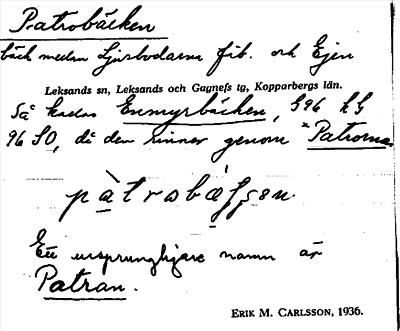 Patrobäcken
bäck mellan Ljusbodarna fib. och Ejen
Leksands sn, Leksands och Gagnefs tg, Kopparbergs län.
Så kallas Enmyrbäcken, 596 hG
96 SO, då den rinner genom *Patrorna
Ett ursprungligare namn är
Patran.
ERIK M. CARLSSON, 1936.